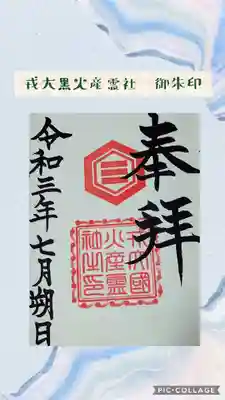 戎大黒火産霊社　御朱印
奉拝
戎大國
火産霊
社之印
令和三年七月朔日
PIC•COLLAGE